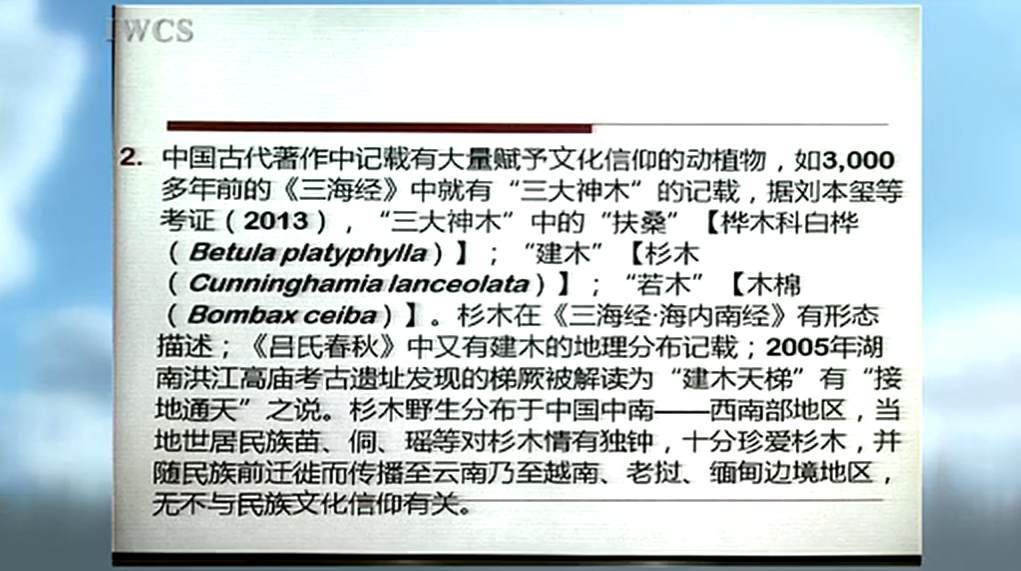 IWCS
2. 中国古代著作中记载有大量赋予文化信仰的动植物，如3,000
多年前的《三海经》中就有“三大神木”的记载，据刘本玺等
考证（2013），“三大神木”中的“扶桑”【桦木科白桦
（Betula platyphylla）】；“建木”【杉木
（Cunninghamia lanceolata）】；“若木”【木棉
（Bombax ceiba）】。杉木在《三海经·海内南经》有形态
描述；《吕氏春秋》中又有建木的地理分布记载；2005年湖
南洪江高庙考古遗址发现的梯厥被解读为“建木天梯”有“接
地通天”之说。杉木野生分布于中国中南——西南部地区，当
地世居民族苗、侗、瑶等对杉木情有独钟，十分珍爱杉木，并
随民族前迁徙而传播至云南乃至越南、老挝、缅甸边境地区，
无不与民族文化信仰有关。